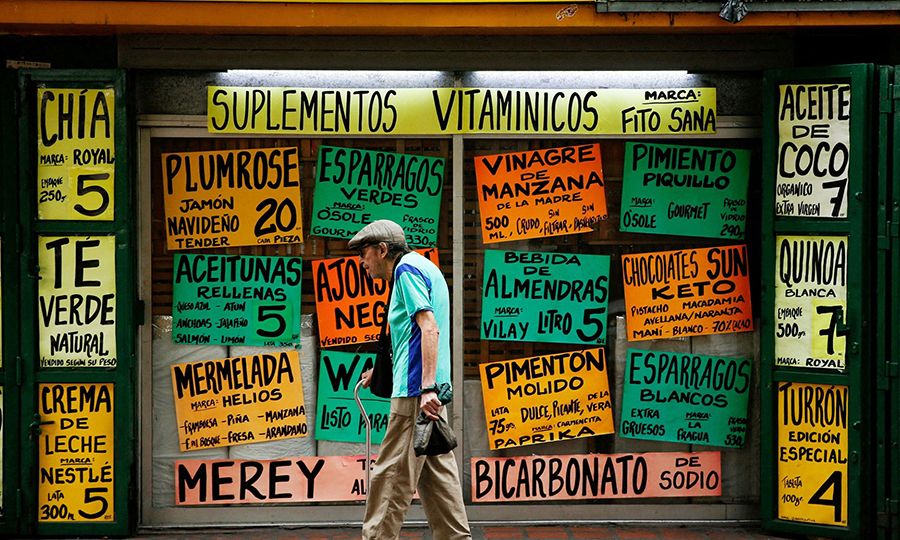 SUPLEMENTOS VITAMINICOS
MARCA:
FITO SANA
CHÍA
MARCA: ROYAL
EMBAQUE
250gr.
5
TÉ
VERDE
NATURAL
VENDIDO SEGÚN SU PESO
CREMA
DE
LECHE
MARCA:
NESTLÉ
LATA
300 m.
5
PLUMROSE
JAMÓN
NAVIDEÑO
TENDER
20
CADA PIEZA
ESPARRAGOS
VERDES
MARCA:
ÓSOLE
GOURMET
FRASCO
DE
VIDRIO
ACEITUNAS
RELLENAS
QUESO AZUL - ATÚN
ANCHOAS - JALAPEÑO
SALMON - LIMON
5
AJONJ
NEG
VENDIDO SEG
MERMELADA
MARCA: HELIOS
FRAMBUESA - PIÑA - MANZANA
MI BOSQUE - FRESA - ARANDANO
W
LISTO PAR
MEREY
VINAGRE DE
MANZANA
DE LA MADRE
500 ML. CRUDO, SIN FILTRAR, SIN
PIMIENTO
PIQUILLO
MARCA:
ÓSOLE
GOURMET
FRASCO
DE
VIDRIO
290gr.
BEBIDA
DE ALMENDRAS
MARCA:
VILAY
LITRO 5
CHOCOLATES SUN
KETO
PISTACHO MACADAMIA
AVELLANA / NARANJA
MANÍ - BLANCO
70Z
PIMENTÓN
MOLIDO
LATA
75gr.
DULCE, PICANTE, DE LA VERA
MARCA: CARMENCITA
PAPRIKA
ESPARRAGOS
BLANCOS
EXTRA
GRUESOS
MARCA:
LA
FRAGUA
FRASCO
DE
VIDRIO
530gr.
BICARBONATO DE SODIO
ACEITE
DE
COCO
ORGANICO
EXTRA VIRGEN
7
QUINOA
BLANCA
EMBAQUE
500gr.
7
MARCA:
ROYAL
TURRÓN
EDICIÓN
ESPECIAL
TABLETA
100gr
4